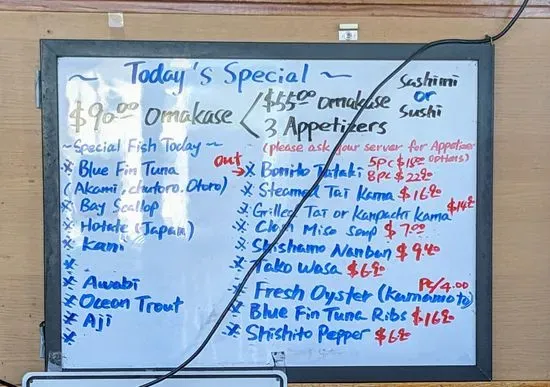 ~ Today's Special ~
$90.00 Omakase < $55.00 omakase
3 Appetizers
Sashimi
or
Sushi
(please ask your server for Appetizer
options)
~Special Fish Today~
* Blue Fin Tuna
(Akami, chutoro, Otoro)
* Bay Scallop
* Hotate (Japan)
* Kani
*
* Awabi
* Ocean Trout
* Aji
*
out → * Bonito Tataki 5pc $18.00
8pc $22.00
* Steamed Tai Kama $16.00
* Grilled Tai or Kanpachi Kama $14.00
* Clam Miso Soup $7.00
* Shishamo Nanban $9.40
* Tako Wasa $6.00
* Fresh Oyster (Kumamoto) Pc/4.00
* Blue Fin Tuna Ribs $16.00
* Shishito Pepper $6.00